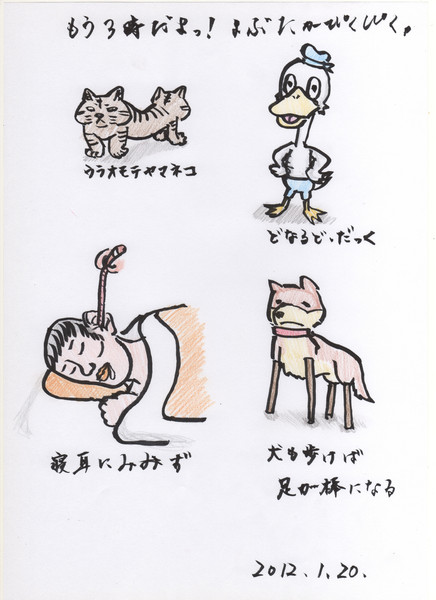 もう3時だよっ!まぶたがぴくぴく。
ウラオモテヤマネコ
どなるど・だっく
寝耳にみみず
犬も歩けば
足が棒になる
2012.1.20.